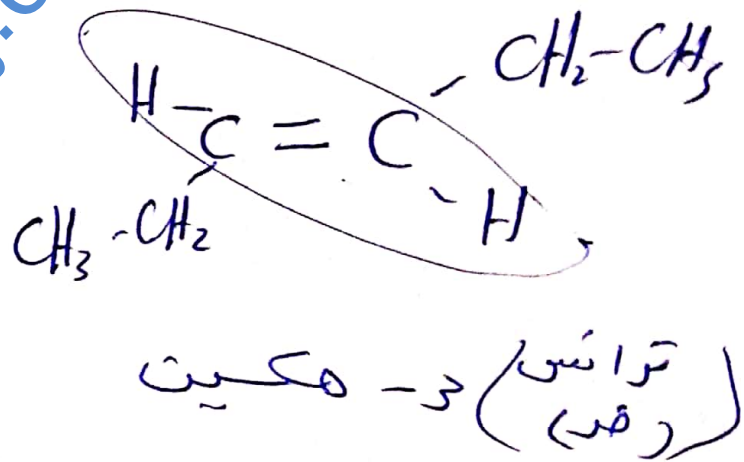 H-C=C-CH₂-CH₃
CH₃-CH₂ -H
(ترانس) 3- هكسين